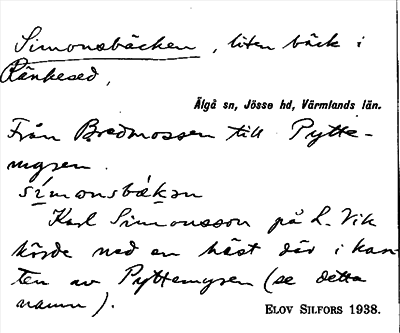 Simonsbäcken, liten bäck i
Ränkesed,
Älgå sn, Jösse hd, Värmlands län.
Från Bredmossen till Pytte-
mysen.
símonsbǽkən
Karl Simonsson på L. Vik
körde ned en häst där i kan-
ten av Pyttemysen (se detta
namn).
ELOV SILFORS 1938.